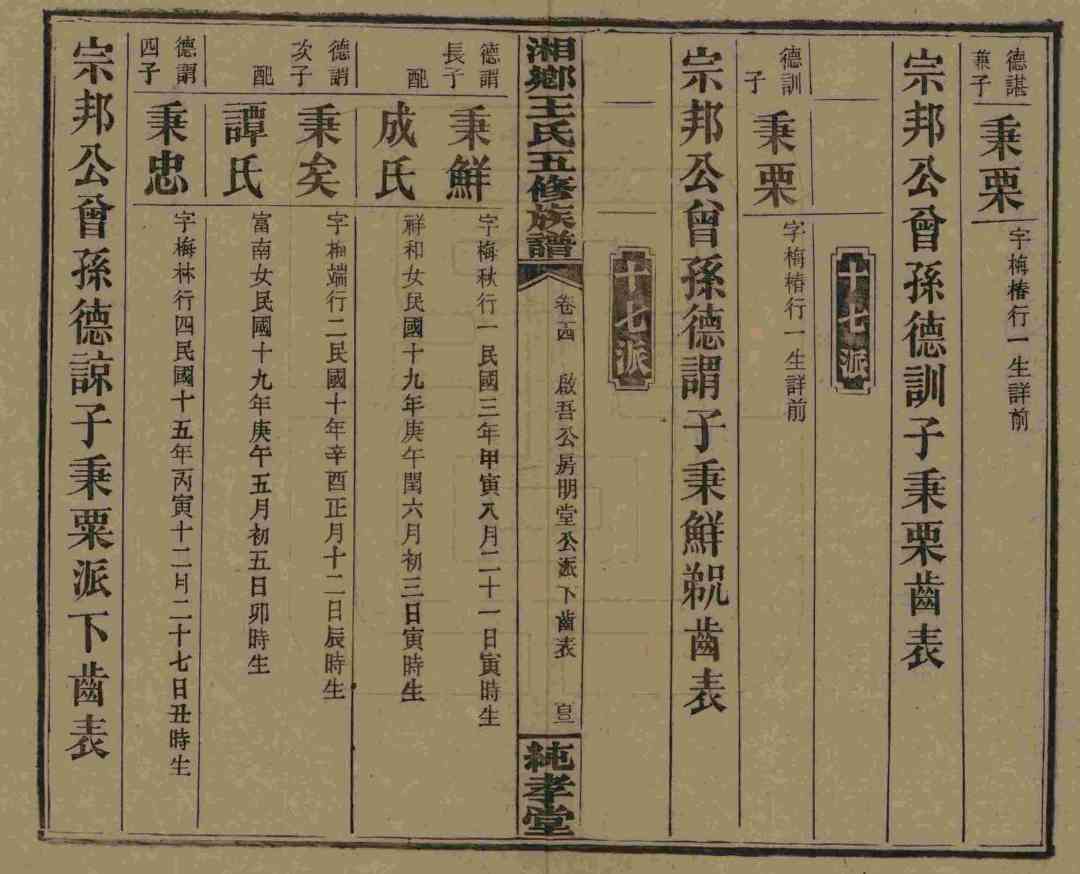 德諶
兼子
秉栗
字梅椿行一生詳前
宗邦公曾孫德訓子秉栗齒表
十七派
德訓
子
秉栗
字梅椿行一生詳前
宗邦公曾孫德謂子秉鮮 齒表
十七派
湘鄉王氏五修族譜
卷十四 啟吾公房明堂公派下齒表
純孝堂
德謂
長子
秉鮮
字梅秋行一民國三年甲寅八月二十一日寅時生
配
成氏
祥和女民國十九年庚午閏六月初三日寅時生
德謂
次子
秉矣
字梅端行二民國十年辛酉正月十二日辰時生
配
譚氏
富南女民國十九年庚午五月初五日卯時生
德謂
四子
秉忠
字梅林行四民國十五年丙寅十二月二十七日丑時生
宗邦公曾孫德諒子秉粟派下齒表